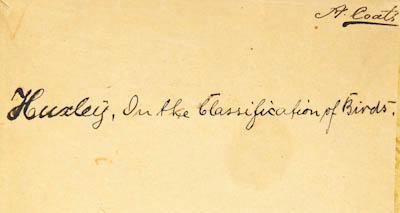 A. Coats
Huxley, On the Classification of Birds.